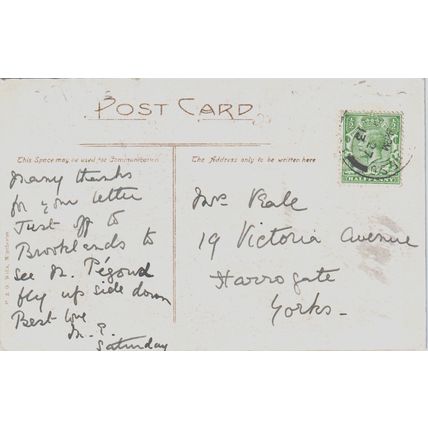 POST CARD
This Space may be used for Communication
The Address only to be written here
Many thanks
for your letter
Just off to
Brooklands to
see M. Pégoud
fly up side down
Best love
M. P.
Saturday
Mrs Beale
19 Victoria Avenue
Harrogate
Yorks.
HALFPENNY